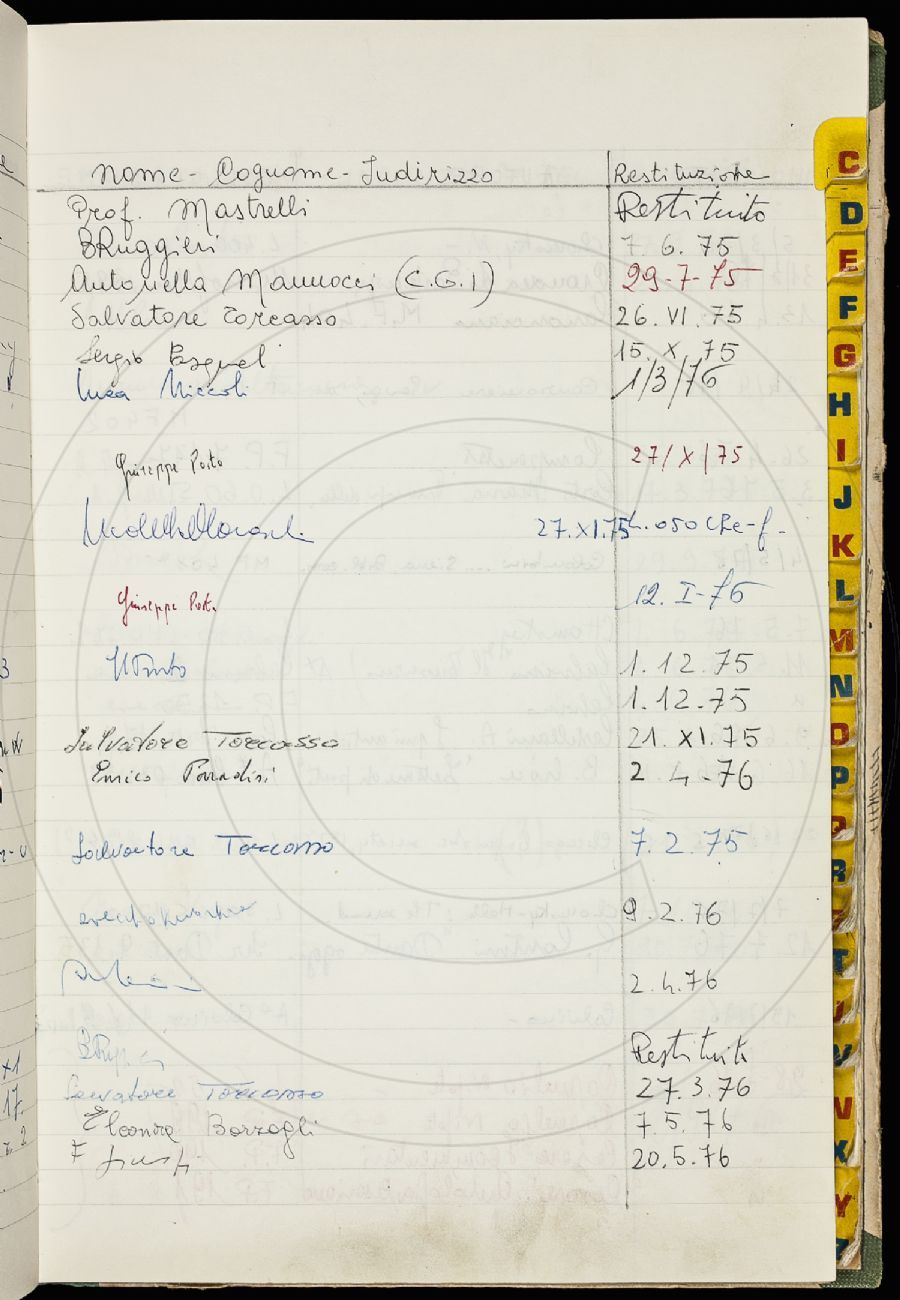 Nome - Cognome - Indirizzo Restituzione
Prof. Mastrelli Restituito
B Ruggieri 7 6. 75
Antonella Mannocci (C.G.I) 29-7-75
Salvatore Torcasso 26. VI. 75
Sergio 15. X. 75
Luca Niccoli 1/3/76
Giuseppe Porto 27/X/75
27.XI.75
Giuseppe Porto 12. I-76
1. 12. 75
1. 12. 75
Salvatore Torcasso 21. XI. 75
Enrico Paradisi 2 4 -76
Salvatore Torcasso 7. 2. 75
9. 2. 76
2. 4. 76
Restituito
Salvatore Torcasso 27. 3. 76
Eleonora Barzagli 7. 5. 76
F 20. 5. 76
C
D
E
F
G
H
I
J
K
L
M
N
O
P
Q
R
S
T
U
V
W
X
Y
Z